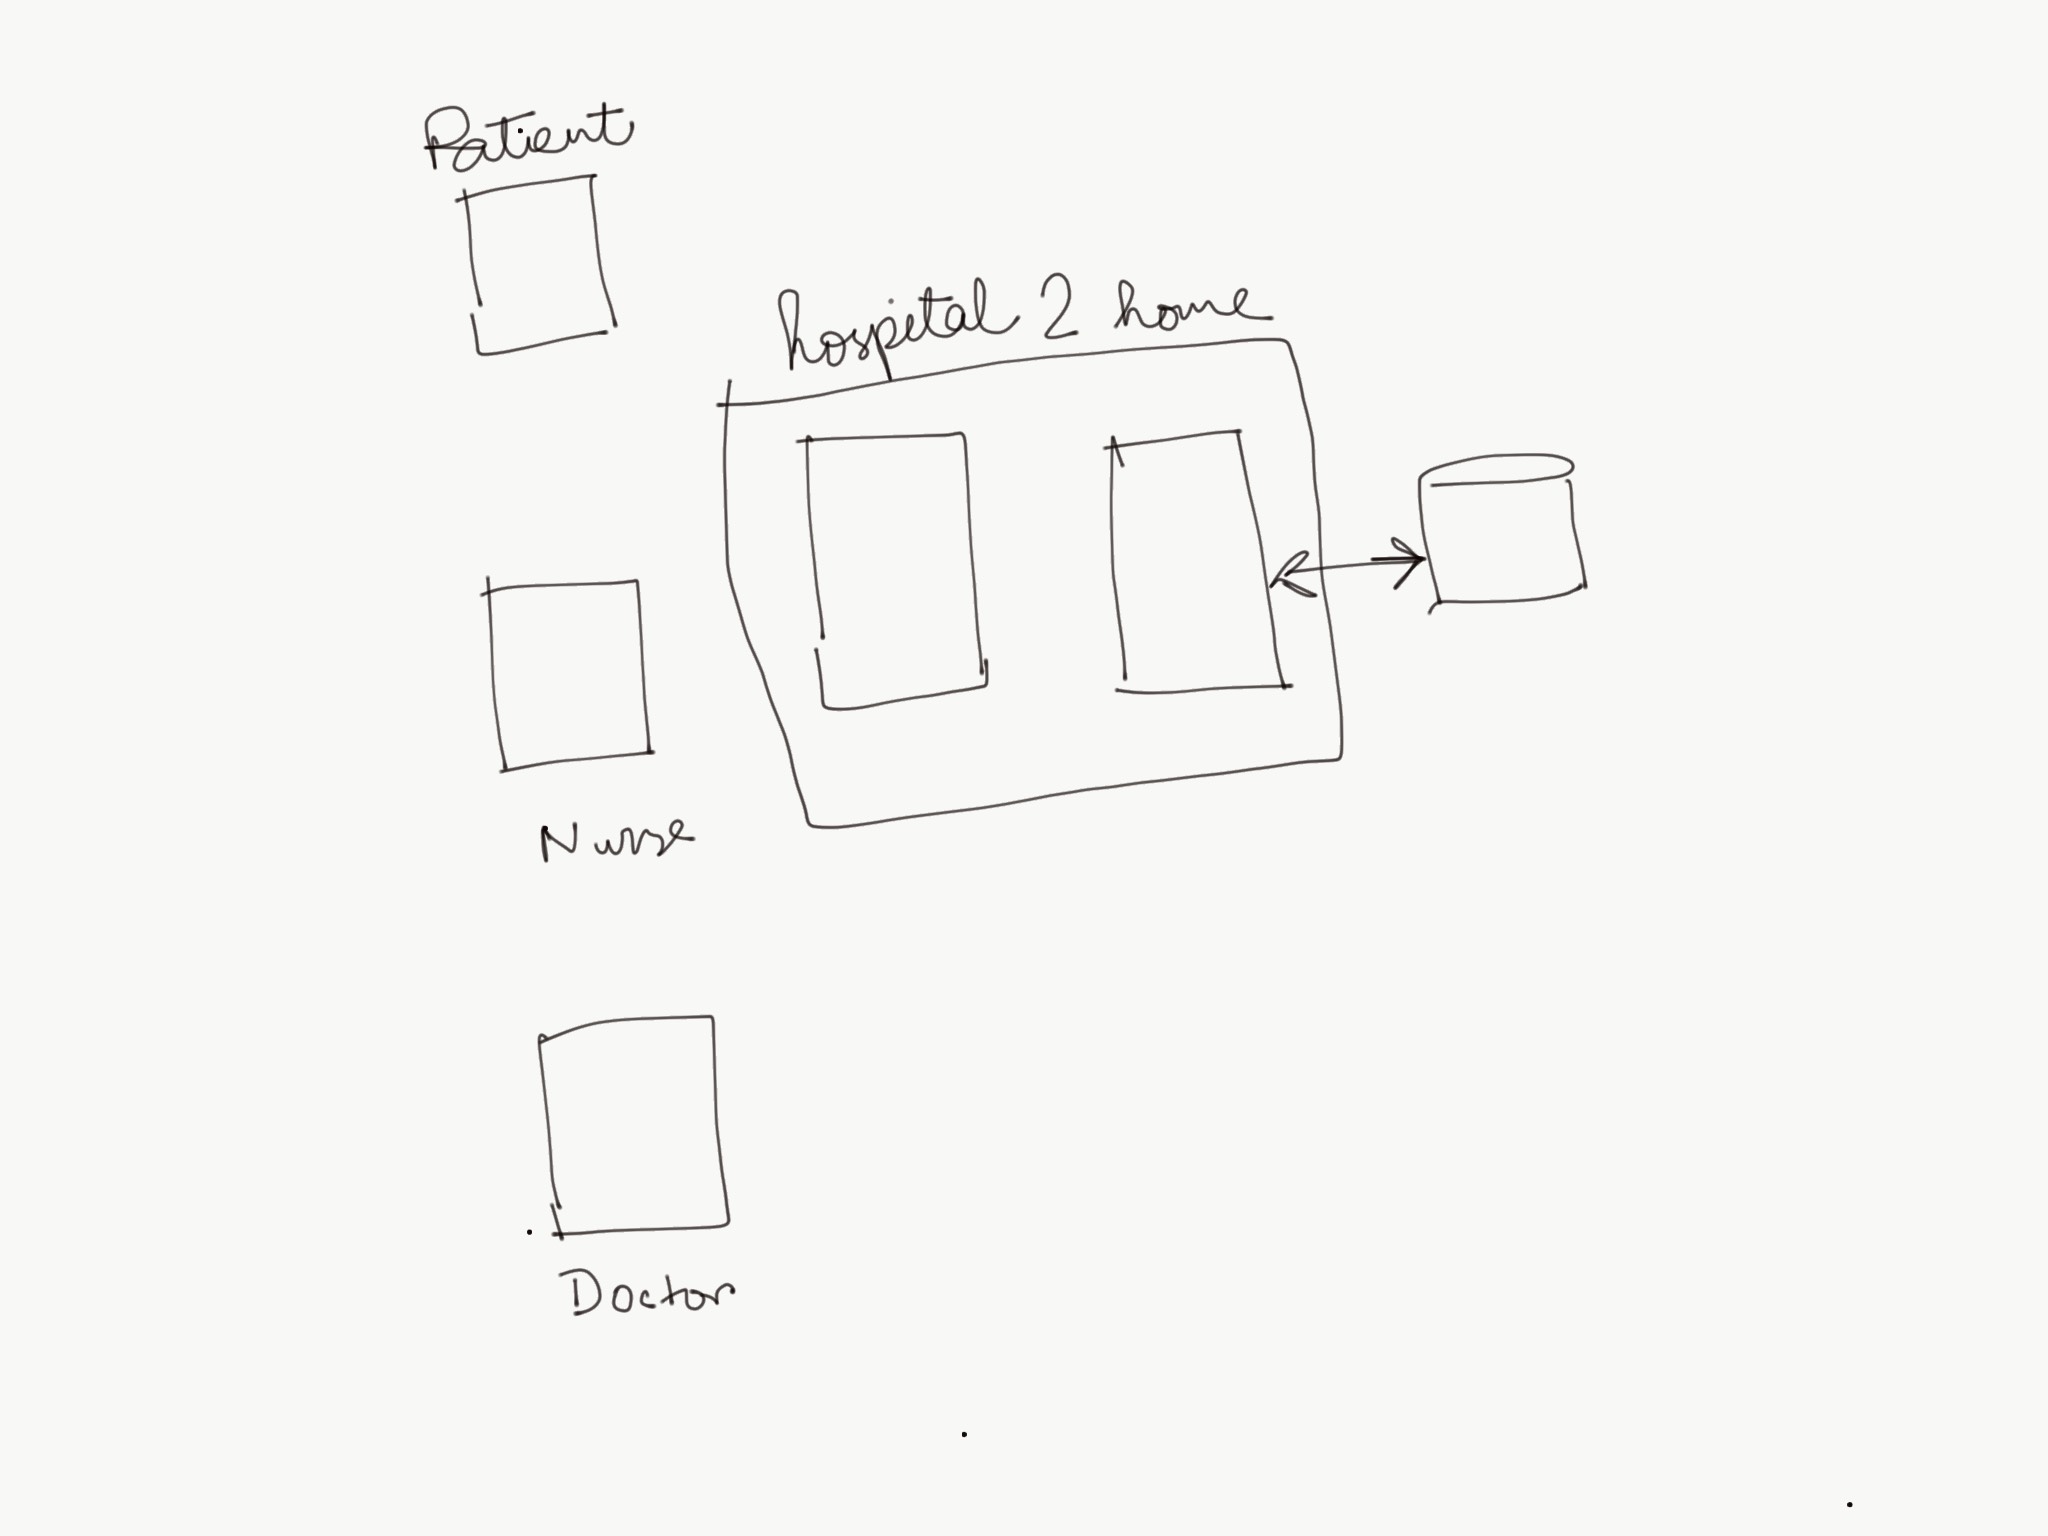 Patient
hospital 2 home
Nurse
Doctor